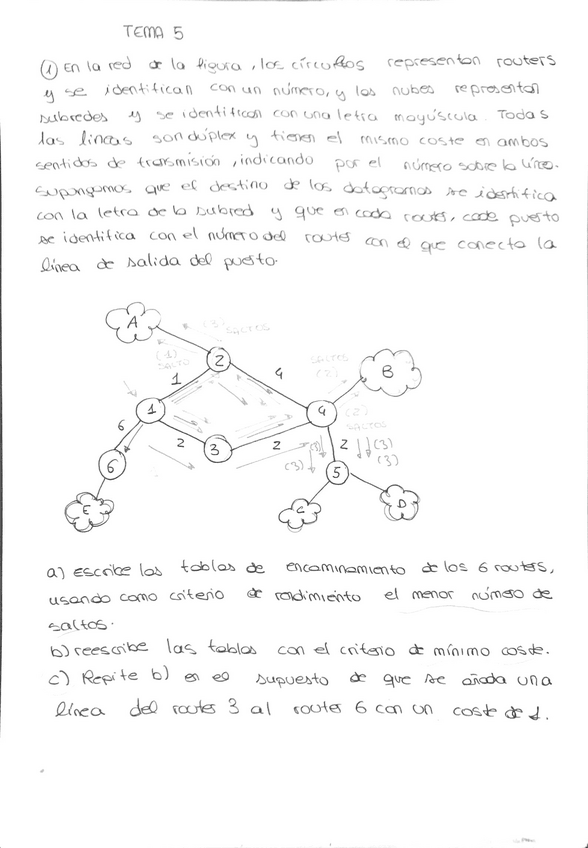 TEMA 5
① En la red de la figura, los círculos representan routers
y se identifican con un número, y las nubes representan
subredes y se identifican con una letra mayúscula. Todas
las líneas son dúplex y tienen el mismo coste en ambos
sentidos de transmisión, indicando por el número sobre la línea.
Supongamos que el destino de los datagramas se identifica
con la letra de la subred y que en cada router, cada puerto
se identifica con el número del router con el que conecta la
línea de salida del puerto.
A
(3)
SALTOS
(1)
SALTO
2
SALTOS
(2)
B
1
4
1
4
(2)
SALTOS
6
2
3
2
(3)
2
(3)
(3)
(3)
6
5
E
C
D
a) escribe las tablas de encaminamiento de los 6 routers,
usando como criterio de rendimiento el menor número de
saltos.
b) reescribe las tablas con el criterio de mínimo coste.
c) Repite b) en el supuesto de que se añada una
línea del router 3 al router 6 con un coste de 1.